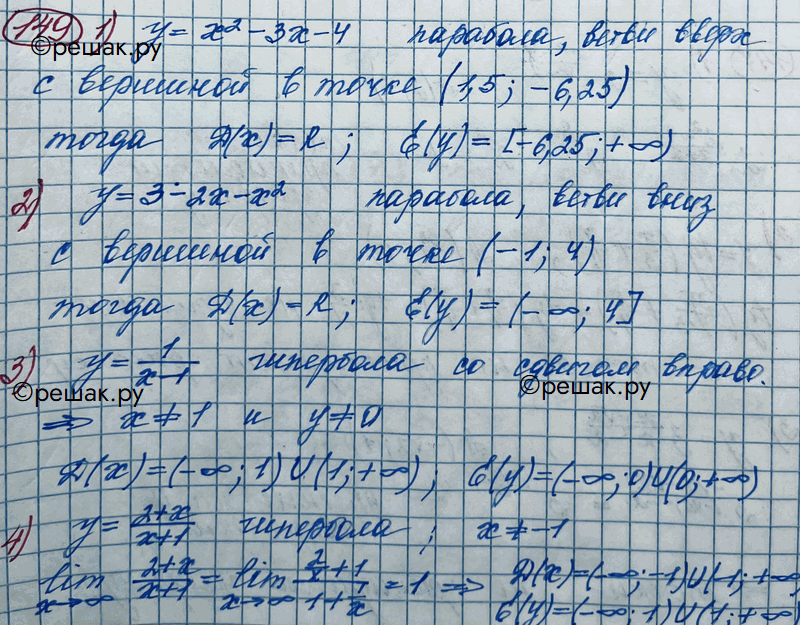 149 1) y = x² - 3x - 4 парабола, ветви вверх
©решак.ру
с вершиной в точке (1,5; -6,25)
тогда D(x) = R; E(y) = [-6,25; +∞)
2) y = 3 - 2x - x² парабола, ветви вниз
с вершиной в точке (-1; 4)
тогда D(x) = R; E(y) = (-∞; 4]
3) y = 1/(x-1) гипербола со сдвигом вправо.
©решак.ру ©решак.ру
=> x ≠ 1 и y ≠ 0
D(x) = (-∞; 1) U (1; +∞); E(y) = (-∞; 0) U (0; +∞)
4) y = (2+x)/(x+1) гипербола; x ≠ -1
lim x→∞ (2+x)/(x+1) = lim x→∞ (2/x + 1)/(1 + 1/x) = 1 => D(x) = (-∞; -1) U (-1; +∞
E(y) = (-∞; 1) U (1; +∞)